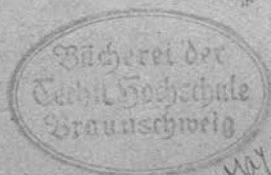 Bücherei der
Techn. Hochschule
Braunschweig